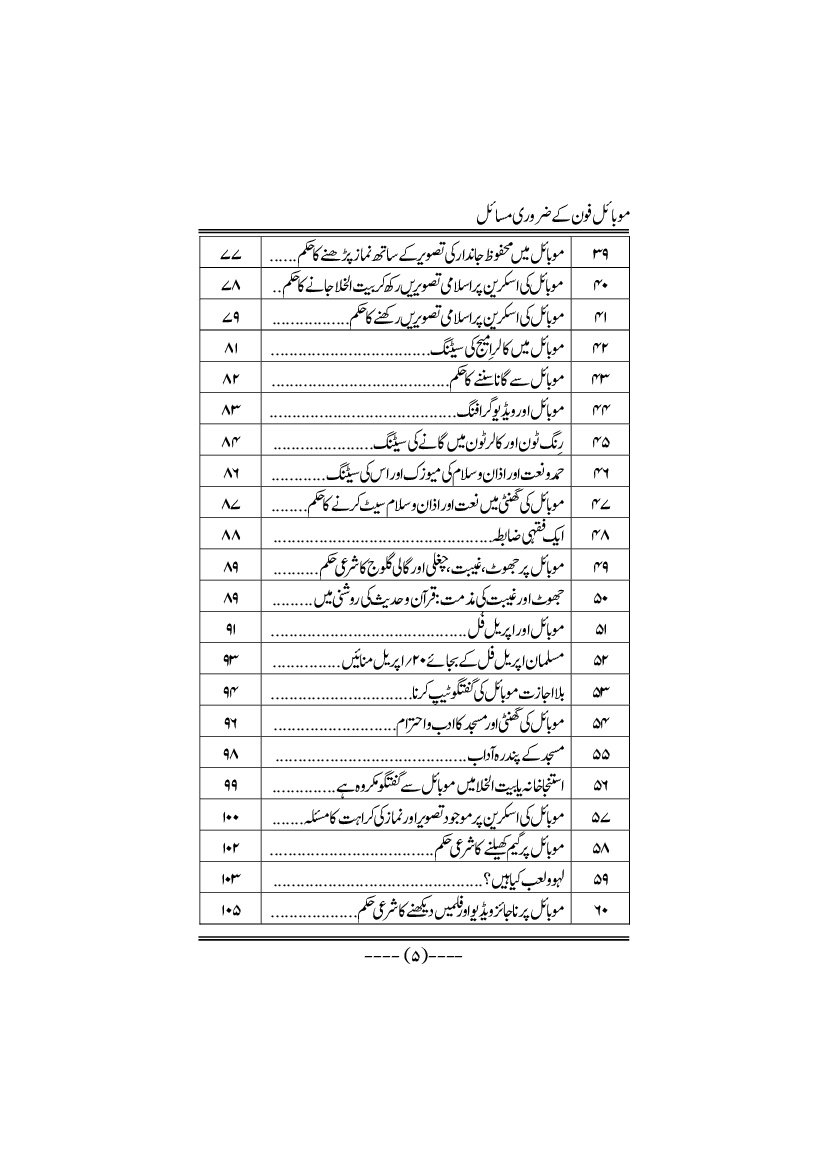 موبائل فون کے ضروری مسائل
۳۹ موبائل میں محفوظ جاندار کی تصویر کے ساتھ نماز پڑھنے کا حکم...... ۷۷
۴۰ موبائل کی اسکرین پر اسلامی تصویریں رکھ کر بیت الخلا جانے کا حکم.. ۷۸
۴۱ موبائل کی اسکرین پر اسلامی تصویریں رکھنے کا حکم................. ۷۹
۴۲ موبائل میں کالر امیج کی سیٹنگ................................... ۸۱
۴۳ موبائل سے گانا سننے کا حکم....................................... ۸۲
۴۴ موبائل اور ویڈیو گرافنگ......................................... ۸۳
۴۵ رِنگ ٹون اور کالر ٹون میں گانے کی سیٹنگ...................... ۸۴
۴۶ حمد و نعت اور اذان و سلام کی میوزک اور اس کی سیٹنگ............ ۸۶
۴۷ موبائل کی گھنٹی میں نعت اور اذان و سلام سیٹ کرنے کا حکم........ ۸۷
۴۸ ایک فقہی ضابطہ................................................ ۸۸
۴۹ موبائل پر جھوٹ، غیبت، چغلی اور گالی گلوج کا شرعی حکم.......... ۸۹
۵۰ جھوٹ اور غیبت کی مذمت: قرآن و حدیث کی روشنی میں......... ۸۹
۵۱ موبائل اور اپریل فُل........................................... ۹۱
۵۲ مسلمان اپریل فل کے بجائے ۲۰/ اپریل منائیں............... ۹۳
۵۳ بلا اجازت موبائل کی گفتگو ٹیپ کرنا............................... ۹۴
۵۴ موبائل کی گھنٹی اور مسجد کا ادب و احترام........................... ۹۶
۵۵ مسجد کے پندرہ آداب.......................................... ۹۸
۵۶ استنجا خانہ یا بیت الخلا میں موبائل سے گفتگو مکروہ ہے.............. ۹۹
۵۷ موبائل کی اسکرین پر موجود تصویر اور نماز کی کراہت کا مسئلہ....... ۱۰۰
۵۸ موبائل پر گیم کھیلنے کا شرعی حکم.................................... ۱۰۲
۵۹ لہو و لعب کیا ہیں؟.............................................. ۱۰۳
۶۰ موبائل پر ناجائز ویڈیو اور فلمیں دیکھنے کا شرعی حکم................... ۱۰۵
----(۵)----